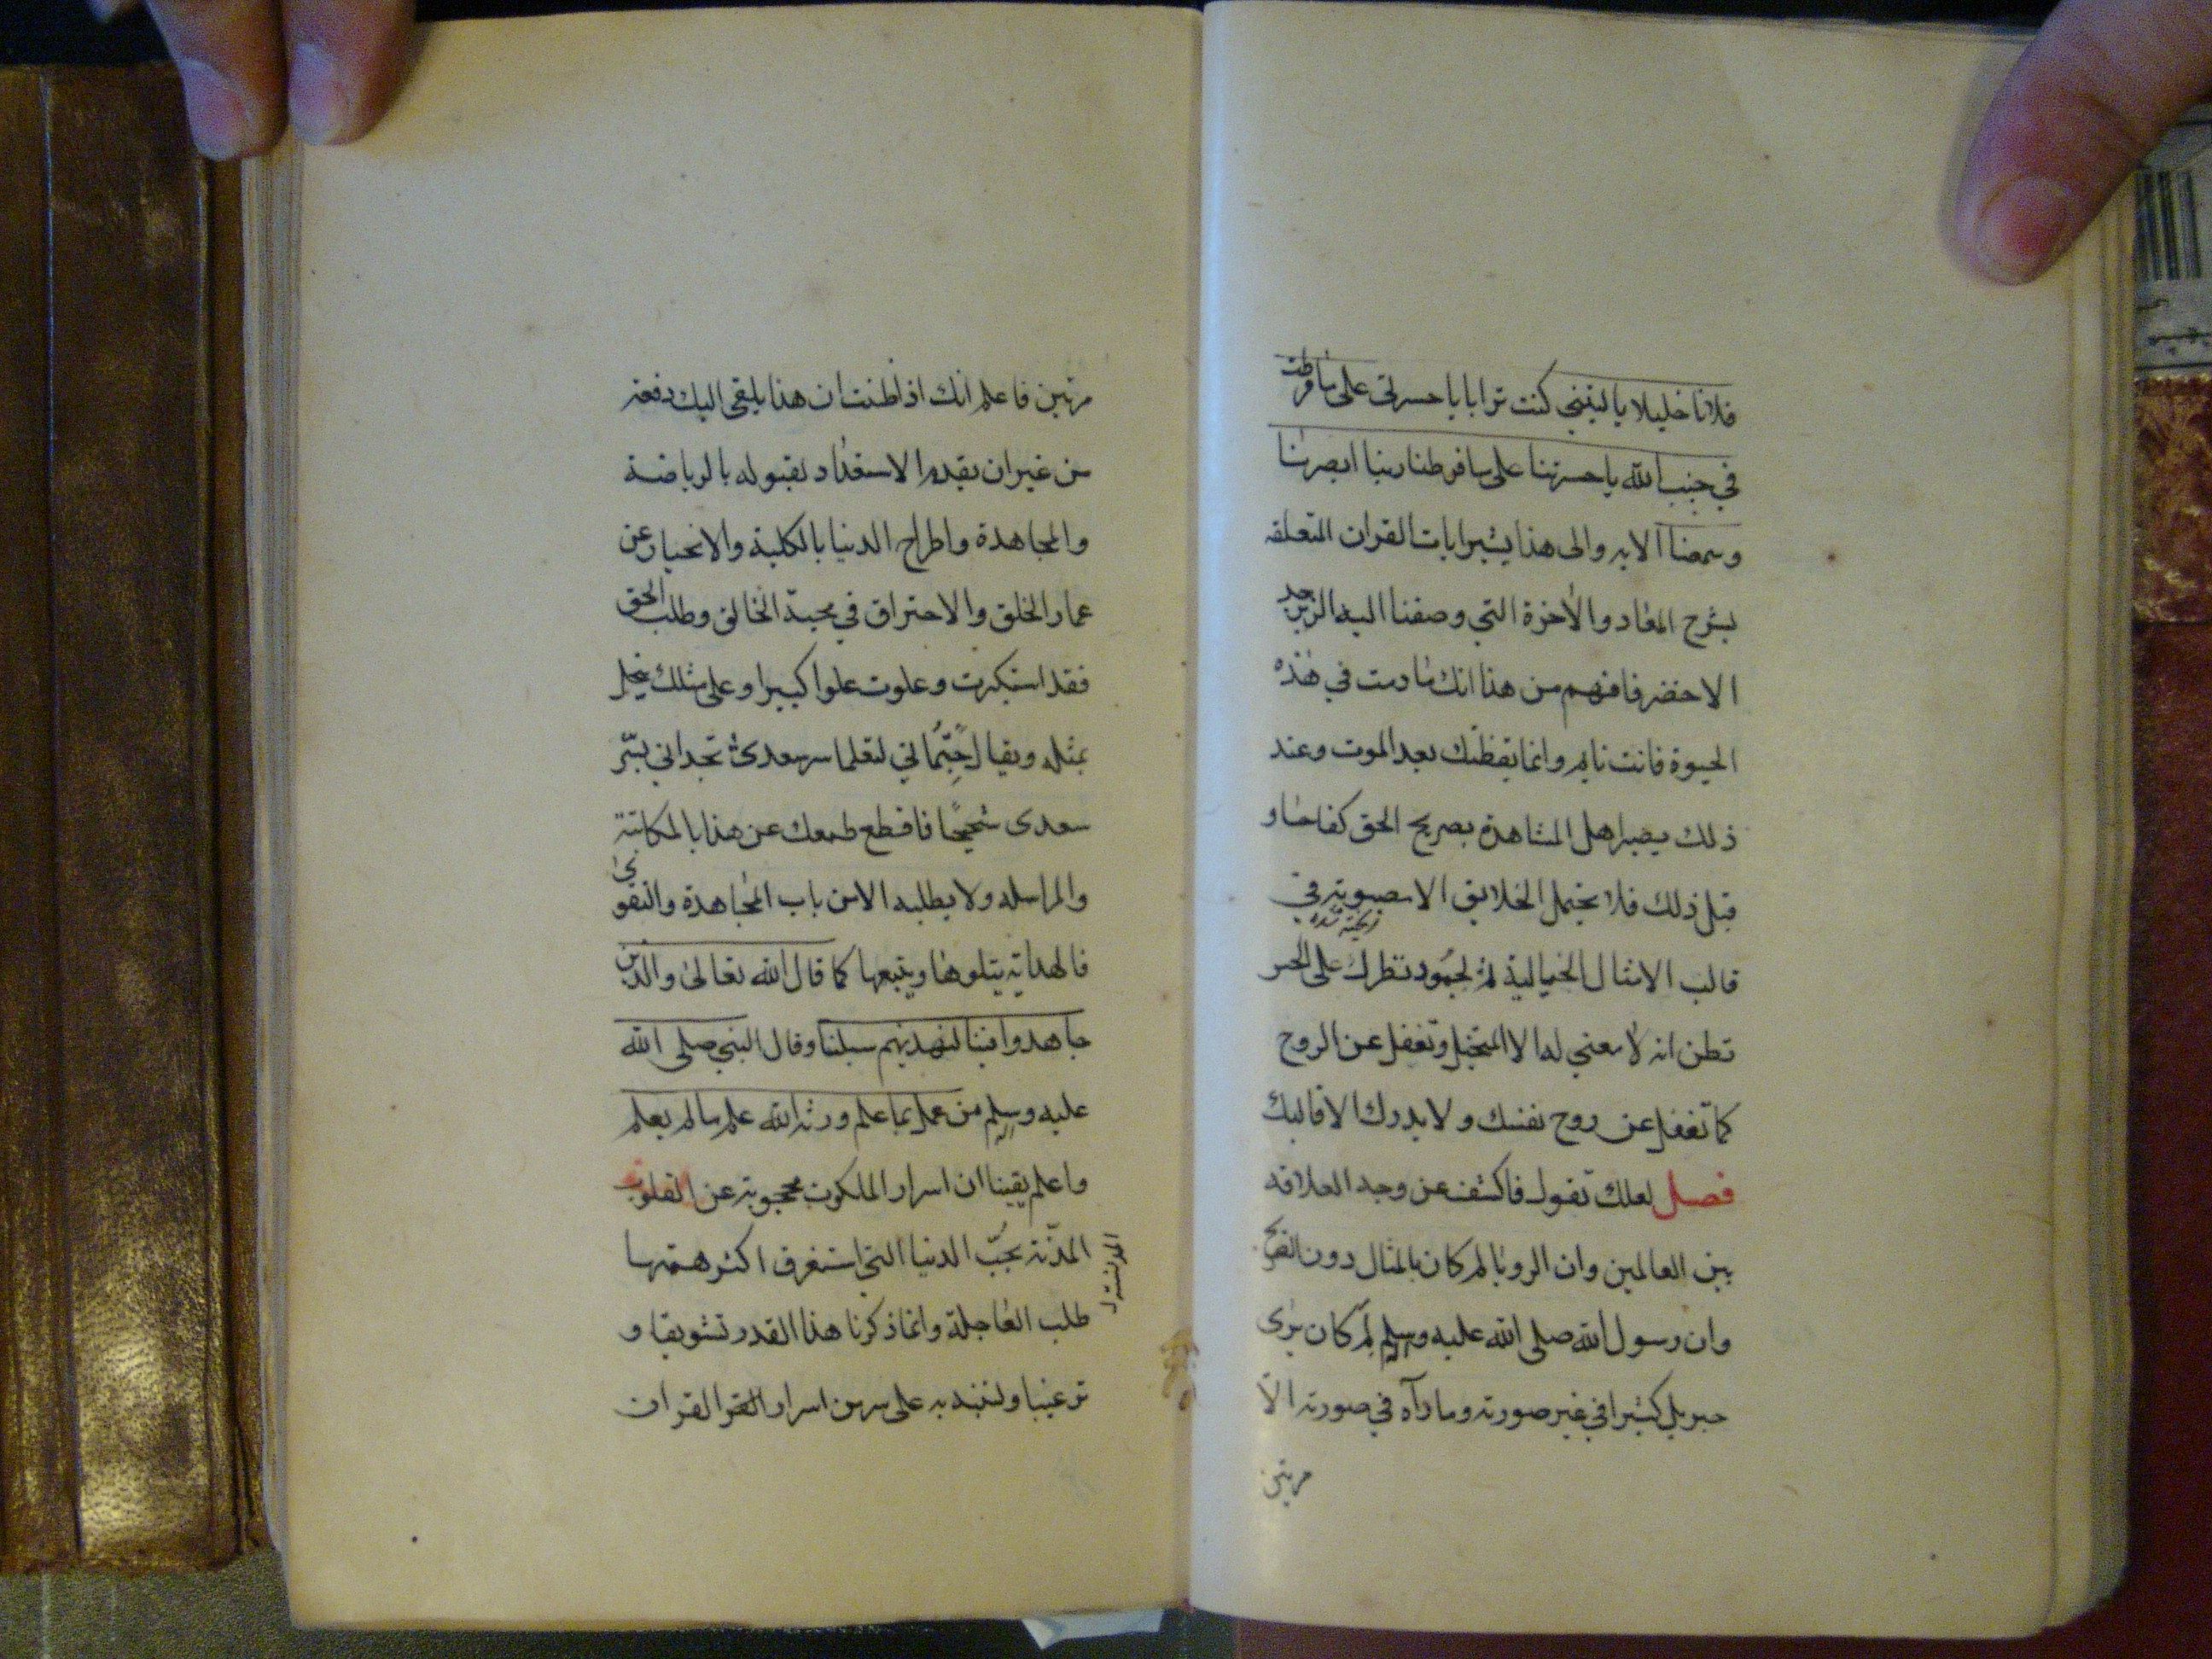 فلانا خليلا يا ليتني كنت ترابا يا حسرتى على ما فرطت
في جنب الله يا حسرتنا على ما فرطنا ربنا ابصرنا
وسمعنا الايه والى هذا يشير ايات القران المتعلقه
بشرح المعاد والاخرة التي وصفنا اليه الزبرجد
الاخضر فافهم من هذا انك ما دمت في هذه
الحيوة فانت نايم وانما يقظتك بعد الموت وعند
ذلك يصير اهل المشاهدة بصريح الحق كفاحا و
قبل ذلك فلا يحتمل الخلايق الا مصبوبة في
قالب الامثال الخيالية ثم لجمود نظرك على الحس
تظن انه لا معنى له الا المتخيل وتغفل عن الروح
كما تغفل عن روح نفسك ولا يدرك الا قالبك
فصل لعلك تقول فاكشف عن وجه العلاقه
بين العالمين وان الرويا لم كان بالمثال دون الصريح
وان رسول الله صلى الله عليه وسلم لم كان يرى
جبريل كثيرا في غير صورته وما رآه في صورته الا
مرتين
مرتين فاعلم انك اذا ظننت ان هذا يلقى اليك دفعة
من غير ان يقدم الاستعداد بقبوله بالرياضة
والمجاهدة واطراح الدنيا بالكلية والانحياز عن
غمار الخلق والاحتراق في محبة الخالق وطلب الحق
فقد استكبرت وعلوت علوا كبيرا وعلى مثلك يبخل
بمثله ويقال جئتماني لتعلما سر سعدى تجداني بسر
سعدى شحيحا فاقطع طمعك عن هذا بالمكاتبة
والمراسله ولا يطلبه الا من باب المجاهدة والتقوى
فالهداية يتلوها ويتبعها كما قال الله تعالى والذين
جاهدوا فينا لنهدينهم سبلنا وقال النبي صلى الله
عليه وسلم من عمل بما علم ورثه الله علم ما لم يعلم
واعلم يقينا ان اسرار الملكوت محجوبة عن القلوب
المدنسة بحب الدنيا التي استغرق اكثر همتها
طلب العاجلة وانما ذكرنا هذا القدر تشويقا و
ترغيبا ولننبه به على سر من اسرار القران